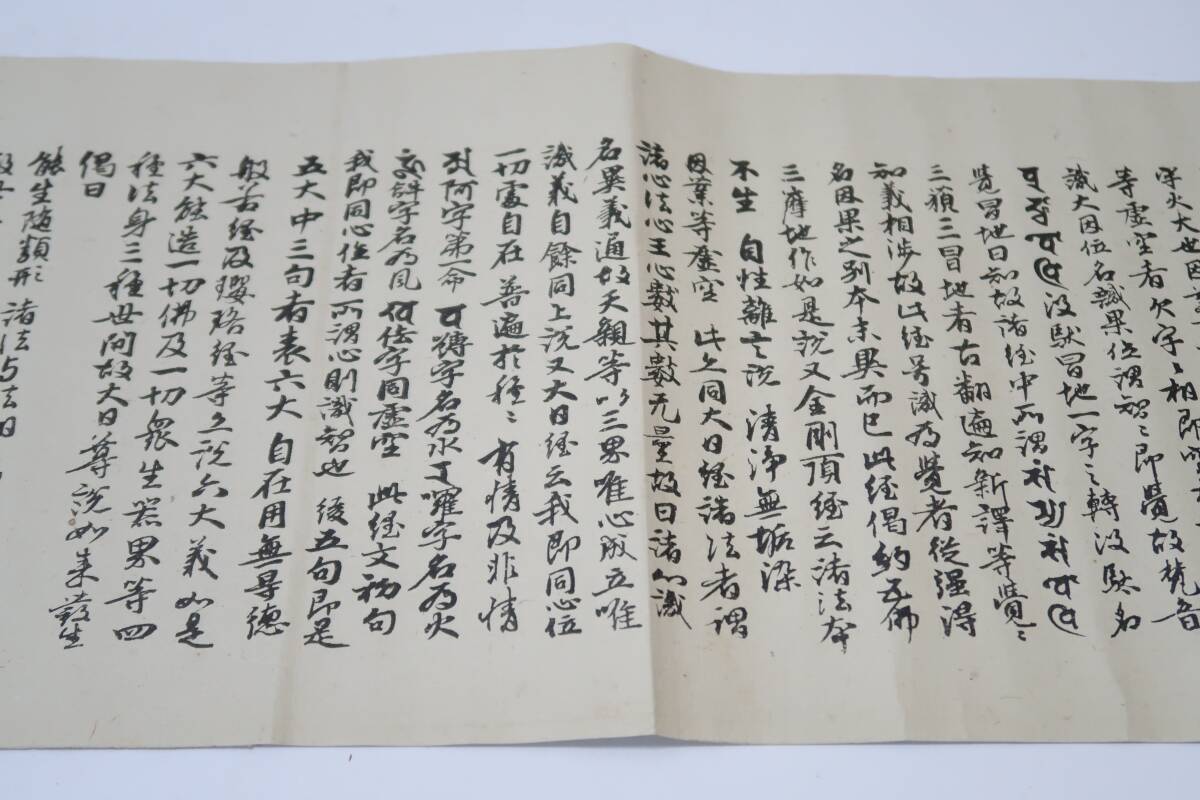 字火大也因
等虛空者欠字〻相即
識大因位名識果位謂智〻即覺故梵音
沒馱冒地一字之轉沒馱名
覺冒地曰知故諸經中所謂
三藐三冒地者古翻遍知新譯等覺〻
知義相涉故此經号識為覺者從强得
名因果之別本末異而已此經偈約五佛
三摩地作如是說又金剛頂經云諸法本
不生 自性離言說 清淨無垢染
因業等虛空 此亦同大日經諸法者謂
諸心法心王心數其數无量故曰諸心識
名異義通故天親等以三界唯心成立唯
識義自餘同上說又大日經云我即同心位
一切處自在 普遍於種〻 有情及非情
阿字第命 嚩字名為水 囉字名為火
字名為風 佉字同虛空 此經文初句
我即同心位者所謂心則識智也 後五句即是
五大中三句者表六大自在用無㝵德
般若經及瓔珞經等亦說六大義如是
六大能造一切佛及一切衆生器界等四
種法身三種世間故大日尊說如來發生
偈曰
能生隨類形 諸法与法相